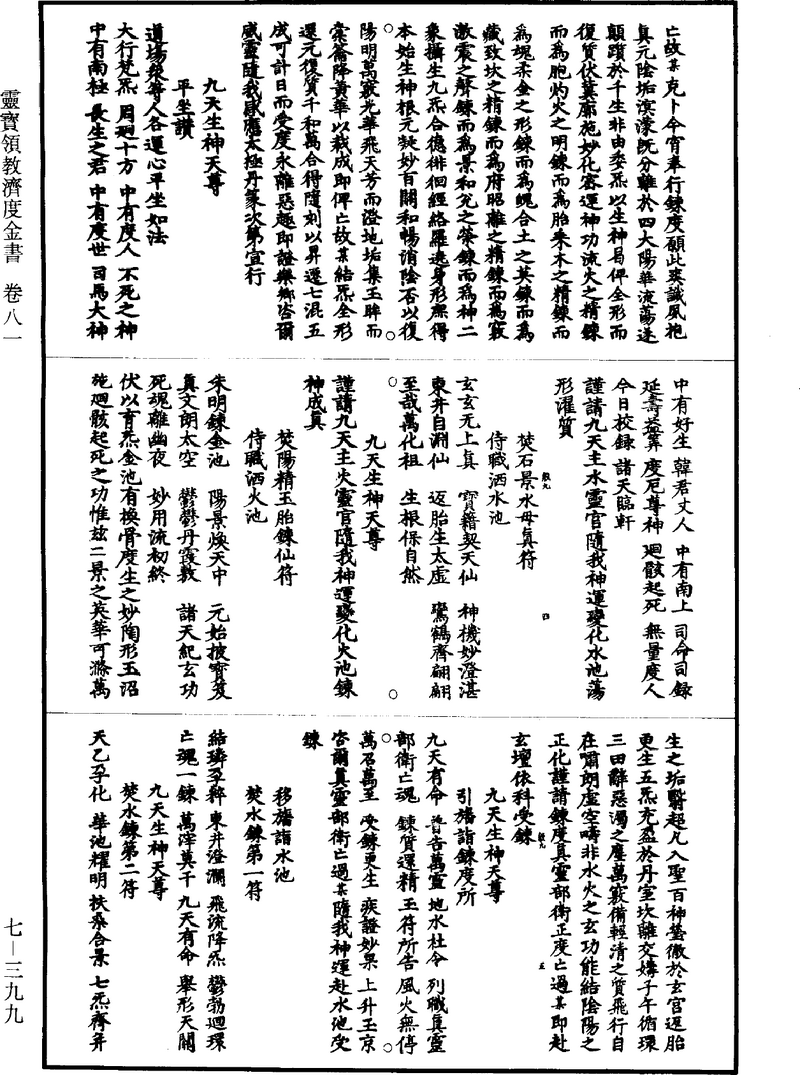 靈寶領教濟度金書 卷八一
七—三九九
亡故某克卜今宵奉行鍊度願此爽識夙抱
真元陰垢溟濛既分離於四大陽華流蕩遂
顛躓於千生非由委炁以生神曷俾全形而
復質伏冀廓施妙化密運神功流火之精鍊
而為胞灼火之明鍊而為胎乘木之精鍊而
為魂柔金之形鍊而為魄合土之英鍊而為
藏致坎之精鍊而為府昭離之精鍊而為竅
激震之聲鍊而為景和兌之榮鍊而為神二
象攝生九炁合德徘徊經絡羅遶身形庶得
本始生神根元凝妙百關和暢消陰否以復
陽明萬竅光華飛天芳而澄地垢集玉眸而
棠籥降黃華以裁成即俾亡故某結炁全形
還元復質千和萬合得隨刻以昇遷七混五
成可計日而受度永離惡趣即證樂鄉咨爾
威靈隨我感應太極丹篆次第宣行
九天生神天尊
平坐讚
道場眾等人各運心平坐如法
大行梵炁 周迴十方 中有度人 不死之神
中有南極 長生之君 中有度世 司馬大神
中有好生 韓君丈人 中有南上 司命司錄
延壽益筭 度厄尊神 迴骸起死 無量度人
今日校錄 諸天臨軒
謹請九天主水靈官隨我神運變化水池蕩
形濯質
焚石景水母真符
侍職洒水池
玄玄无上真 寶籍契天仙 神機妙澄湛
東井自淵仙 返胎生太虛 鸞鶴齊翩翩
至哉萬化祖 生根保自然
九天生神天尊
謹請九天主火靈官隨我神運變化火池鍊
神成真
焚陽精玉胎鍊仙符
侍職洒火池
朱明鍊金池 陽景煥天中 元始披寶笈
真文朗太空 鬱鬱丹霞敷 諸天紀玄功
死魂離幽夜 妙用流初終
伏以育炁金池有換骨度生之妙陶形玉沼
施迴骸起死之功惟茲二景之英華可滌萬
生之垢翳超凡入聖百神瑩徹於玄宮返胎
更生五炁充盈於丹室坎離交媾子午循環
三田離惡濁之塵萬竅備輕清之質飛行自
在嘯朗虛空疇非水火之玄功能結陰陽之
正化謹請鍊度真靈部衛正度亡過某即赴
玄壇依科受鍊
九天生神天尊
引旛詣鍊度所
九天有命 普告萬靈 地水杜令 列職真靈
部衛亡魂 鍊質還精 玉符所告 風火無停
萬召萬至 受鍊更生 爽證妙果 上升玉京
咨爾真靈部衛亡過某隨我神運赴水池受
鍊
移旛詣水池
焚水鍊第一符
結璘孕粹 東井澄瀾 飛流降炁 鬱勃迴環
亡魂一鍊 萬滓莫干 九天有命 舉形天關
九天生神天尊
焚水鍊第二符
天乙孕化 華池耀明 扶桑合景 七炁齊并